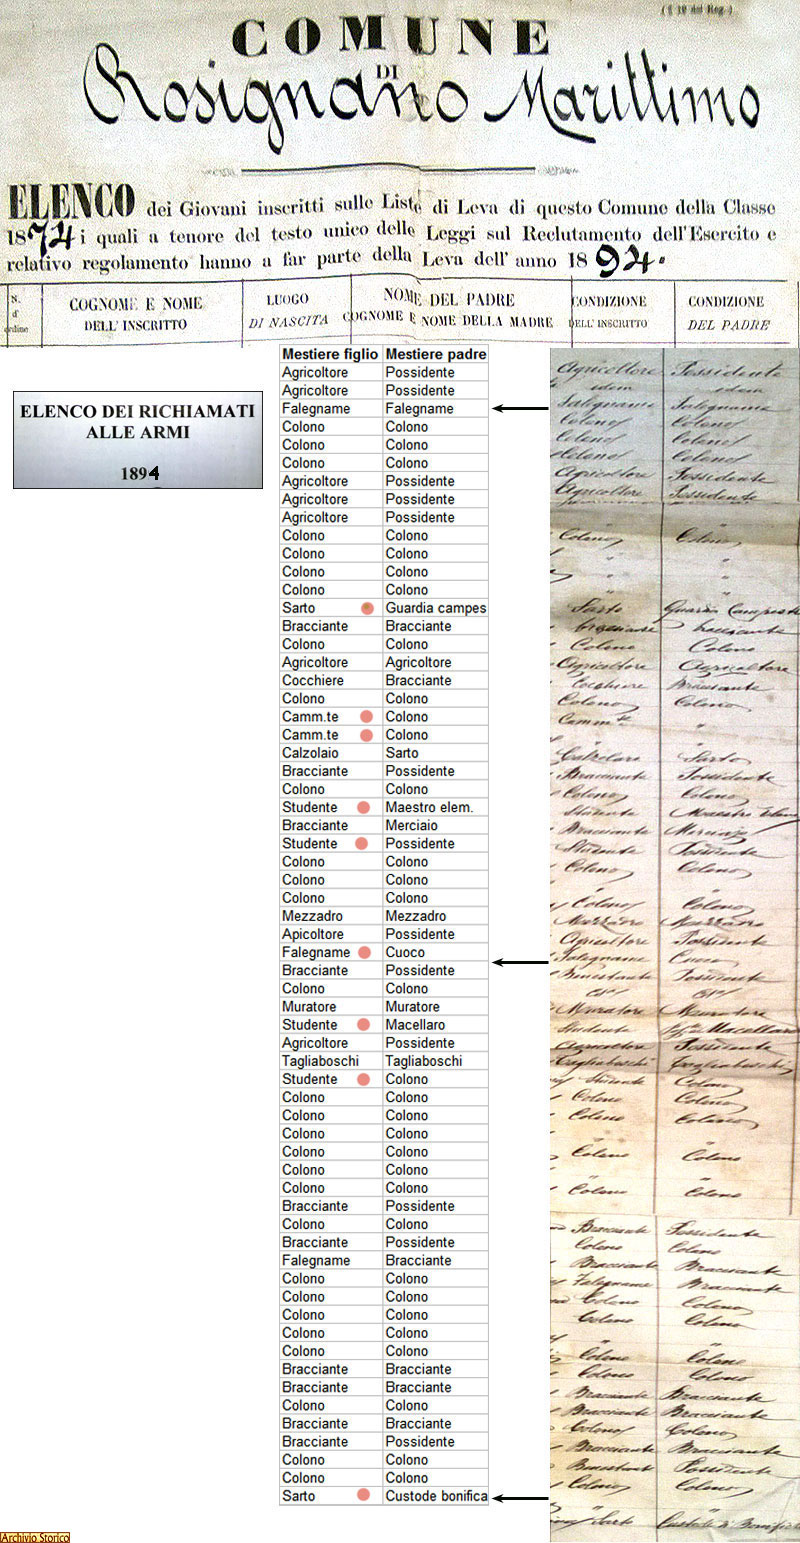 (§ 19 del Reg.)
COMUNE
DI
Rosignano Marittimo
ELENCO dei Giovani inscritti sulle Liste di Leva di questo Comune della Classe
1874 i quali a tenore del testo unico delle Leggi sul Reclutamento dell'Esercito e
relativo regolamento hanno a far parte della Leva dell'anno 1894.
N. d' ordine COGNOME E NOME DELL'INSCRITTO LUOGO DI NASCITA NOME DEL PADRE COGNOME E NOME DELLA MADRE CONDIZIONE DELL'INSCRITTO CONDIZIONE DEL PADRE
ELENCO DEI RICHIAMATI
ALLE ARMI
1894
Mestiere figlio Mestiere padre
Agricoltore Possidente
Agricoltore Possidente
Falegname Falegname
Colono Colono
Colono Colono
Colono Colono
Agricoltore Possidente
Agricoltore Possidente
Agricoltore Possidente
Colono Colono
Colono Colono
Colono Colono
Colono Colono
Sarto Guardia campes
Bracciante Bracciante
Colono Colono
Agricoltore Agricoltore
Cocchiere Bracciante
Colono Colono
Camm.te Colono
Camm.te Colono
Calzolaio Sarto
Bracciante Possidente
Colono Colono
Studente Maestro elem.
Bracciante Merciaio
Studente Possidente
Colono Colono
Colono Colono
Colono Colono
Mezzadro Mezzadro
Apicoltore Possidente
Falegname Cuoco
Bracciante Possidente
Colono Colono
Muratore Muratore
Studente Macellaro
Agricoltore Possidente
Tagliaboschi Tagliaboschi
Studente Colono
Colono Colono
Colono Colono
Colono Colono
Colono Colono
Colono Colono
Colono Colono
Bracciante Possidente
Colono Colono
Bracciante Possidente
Falegname Bracciante
Colono Colono
Colono Colono
Colono Colono
Colono Colono
Colono Colono
Bracciante Bracciante
Bracciante Bracciante
Colono Colono
Bracciante Bracciante
Bracciante Possidente
Colono Colono
Colono Colono
Sarto Custode bonifica
Agricoltore Possidente
idem idem
Falegname Falegname
Colono Colono
Colono Colono
Colono Colono
Agricoltore Possidente
Agricoltore Possidente
Colono Colono
Sarto Guardia Campestre
bracciante bracciante
Colono Colono
Agricoltore Agricoltore
Cocchiere Bracciante
Colono Colono
Camm.te "
Calzolaro Sarto
Bracciante Possidente
Colono Colono
Studente Maestro Elem
Bracciante Merciajo
Studente Possidente
Colono Colono
Colono Colono
Mezzadro Mezzadro
Agricoltore Possidente
Falegname Cuoco
Benestante Possidente
Muratore Muratore
Studente Macellaro
Agricoltore Possidente
Tagliaboschi Tagliaboschi
Studente Colono
Colono Colono
Colono Colono
Colono Colono
Colono Colono
Bracciante Possidente
Colono Colono
Bracciante Bracciante
Falegname Bracciante
Colono Colono
Colono Colono
Colono Colono
Colono Colono
Bracciante Bracciante
Bracciante Bracciante
Colono Colono
Bracciante Bracciante
Benestante Possidente
Colono Colono
Sarto Custode di Bonifiche
Archivio Storico